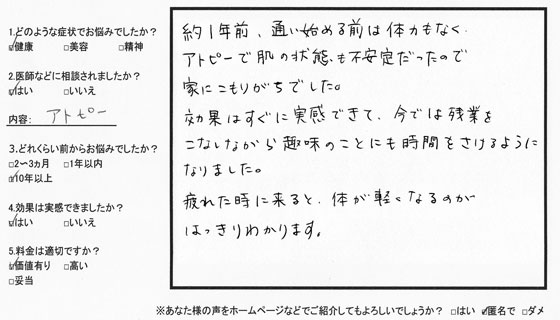 1.どのような症状でお悩みでしたか?
☑健康 □美容 □精神
2.医師などに相談されましたか?
☑はい □いいえ
内容: アトピー
3.どれくらい前からお悩みでしたか?
□2〜3ヵ月 □1年以内
☑10年以上
4.効果は実感できましたか?
☑はい □いいえ
5.料金は適切ですか?
☑価値有り □高い
□妥当
約1年前、通い始める前は体力もなく、
アトピーで肌の状態も不安定だったので
家にこもりがちでした。
効果はすぐに実感できて、今では残業を
こなしながら趣味のことにも時間をさけるように
なりました。
疲れた時に来ると、体が軽くなるのが
はっきりわかります。
※あなた様の声をホームページなどでご紹介してもよろしいでしょうか? □はい ☑匿名で □ダメ